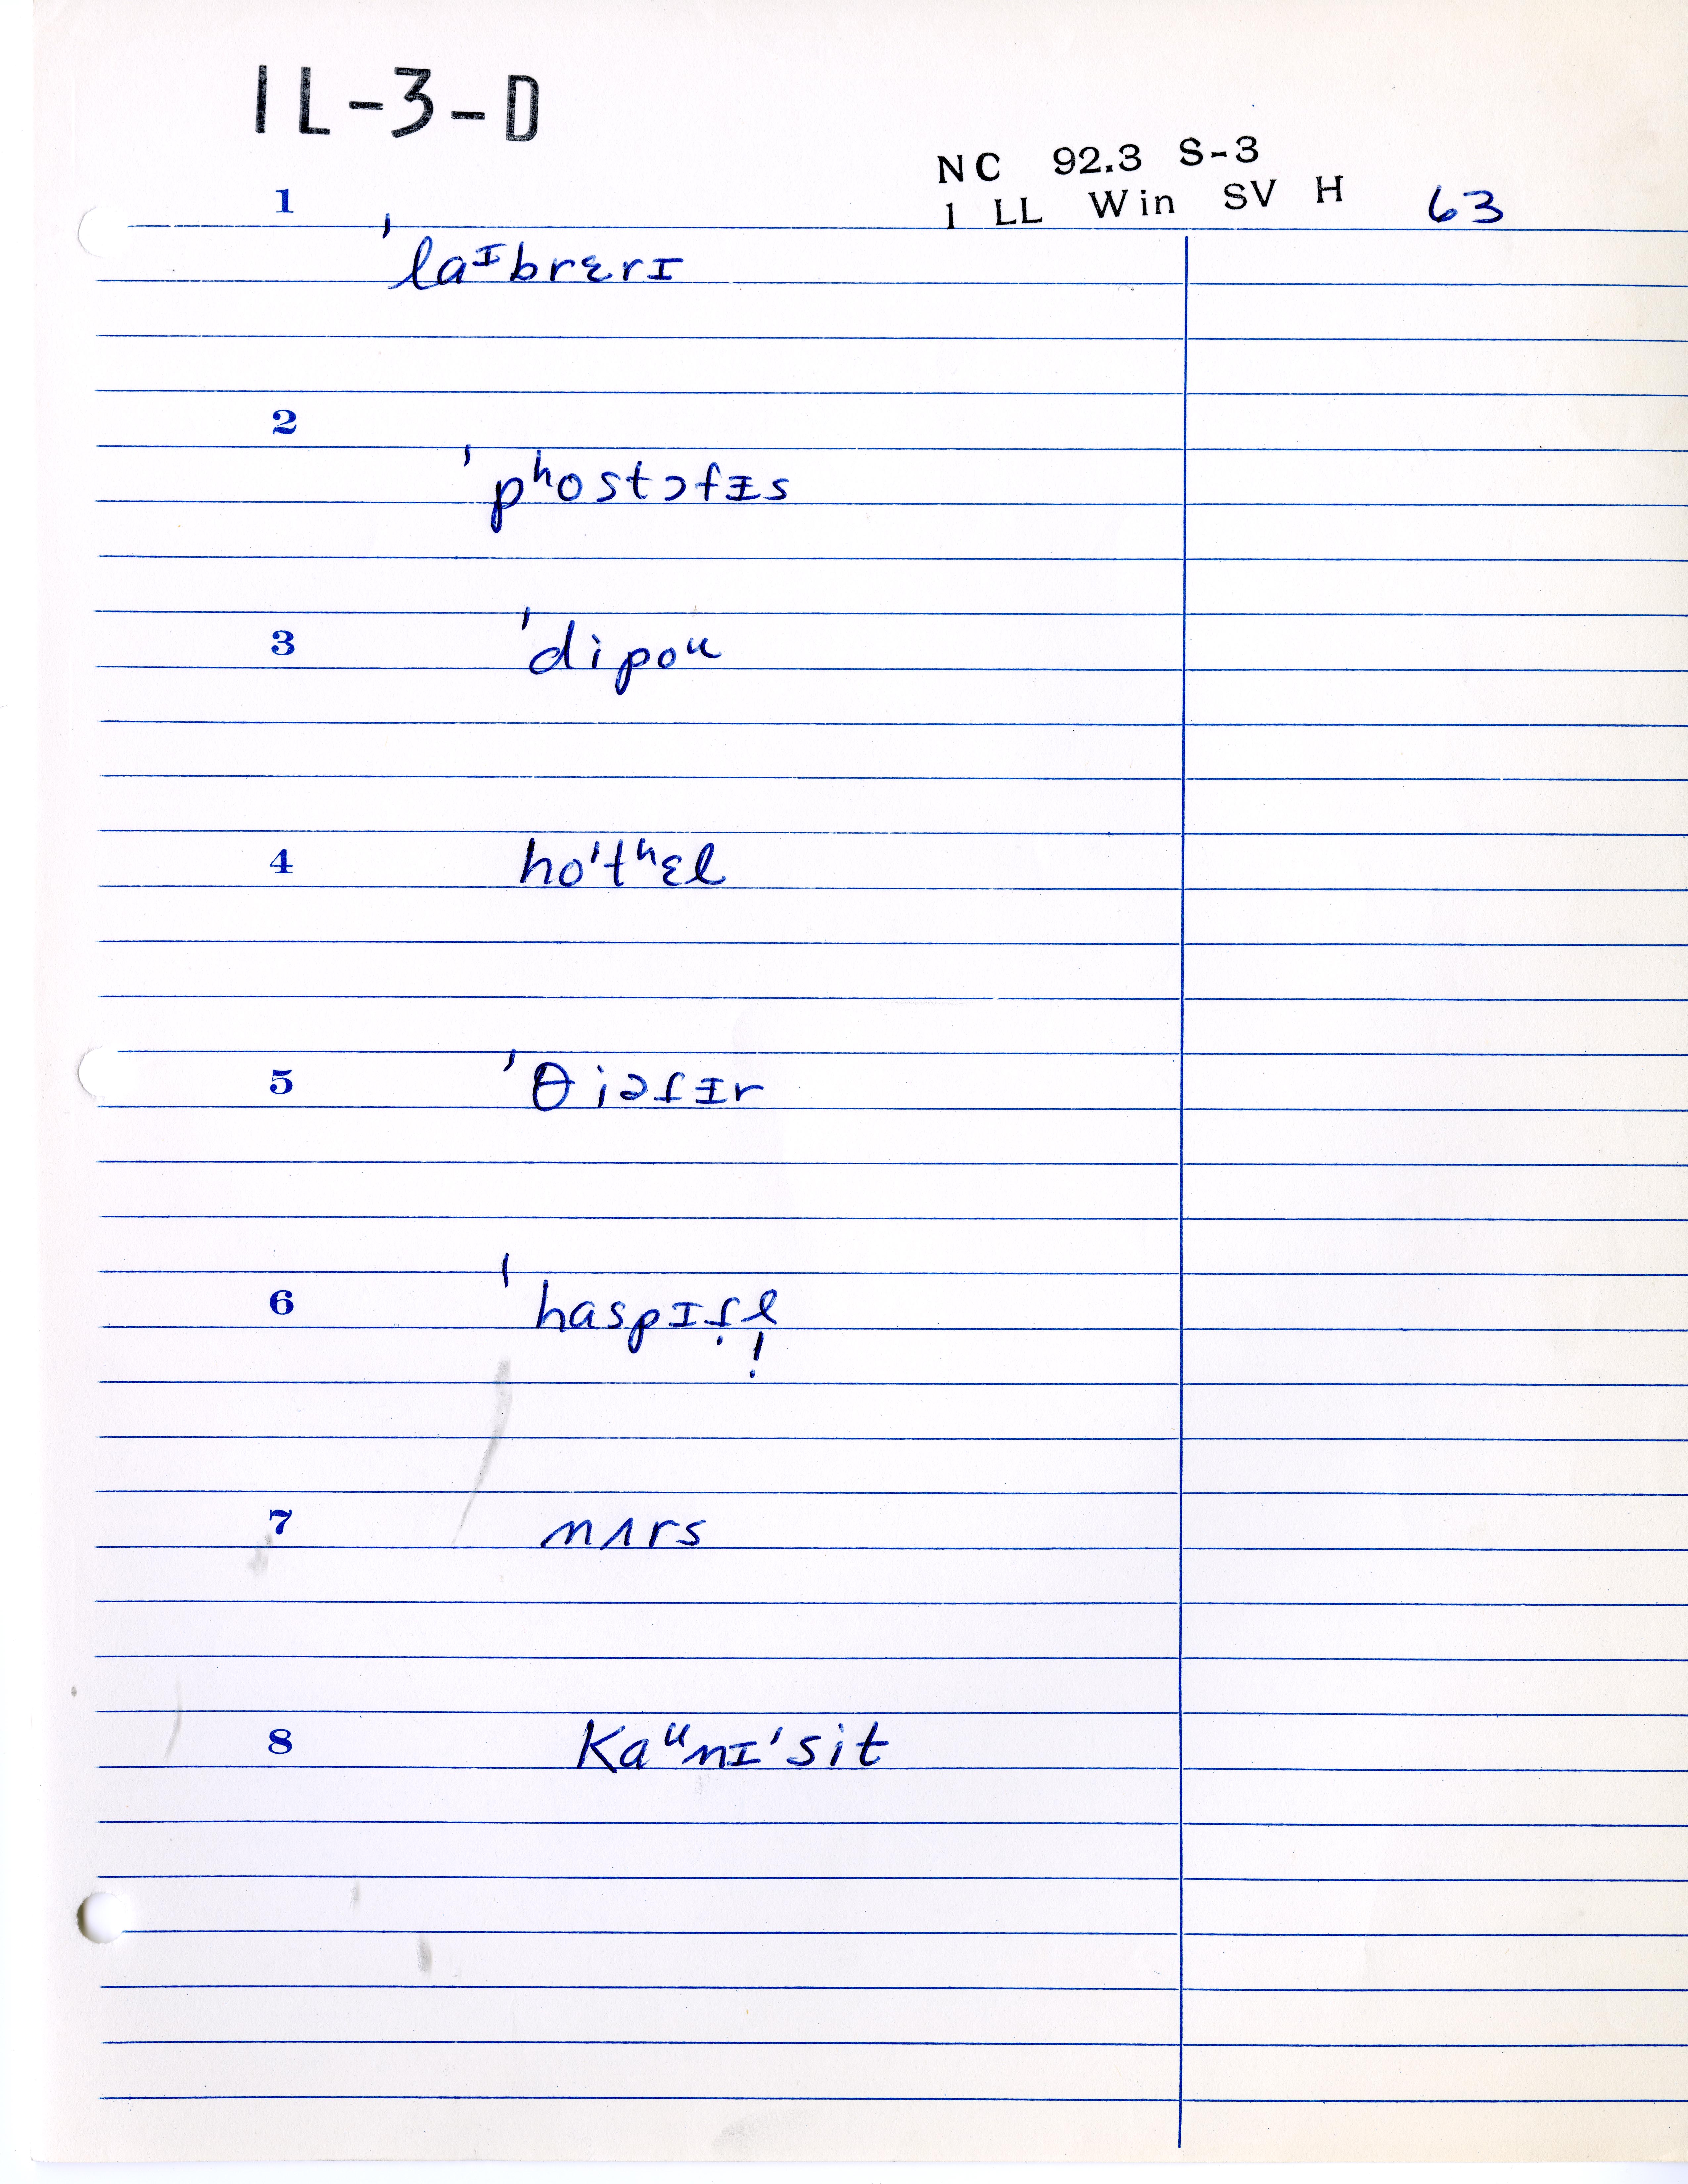 IL-3-D
NC 92.3 S-3
1 LL Win SV H 63
1
ˈlaᶦbrɛrɪ
2
ˈpʰostɔfɪ̵s
3
ˈdipoᵘ
4
hoˈtʰɛl
5
ˈθiəɾɪ̵r
6
ˈhaspɪɾ̣l̩
7
nʌrs
8
Kaᵘnɪˈsit